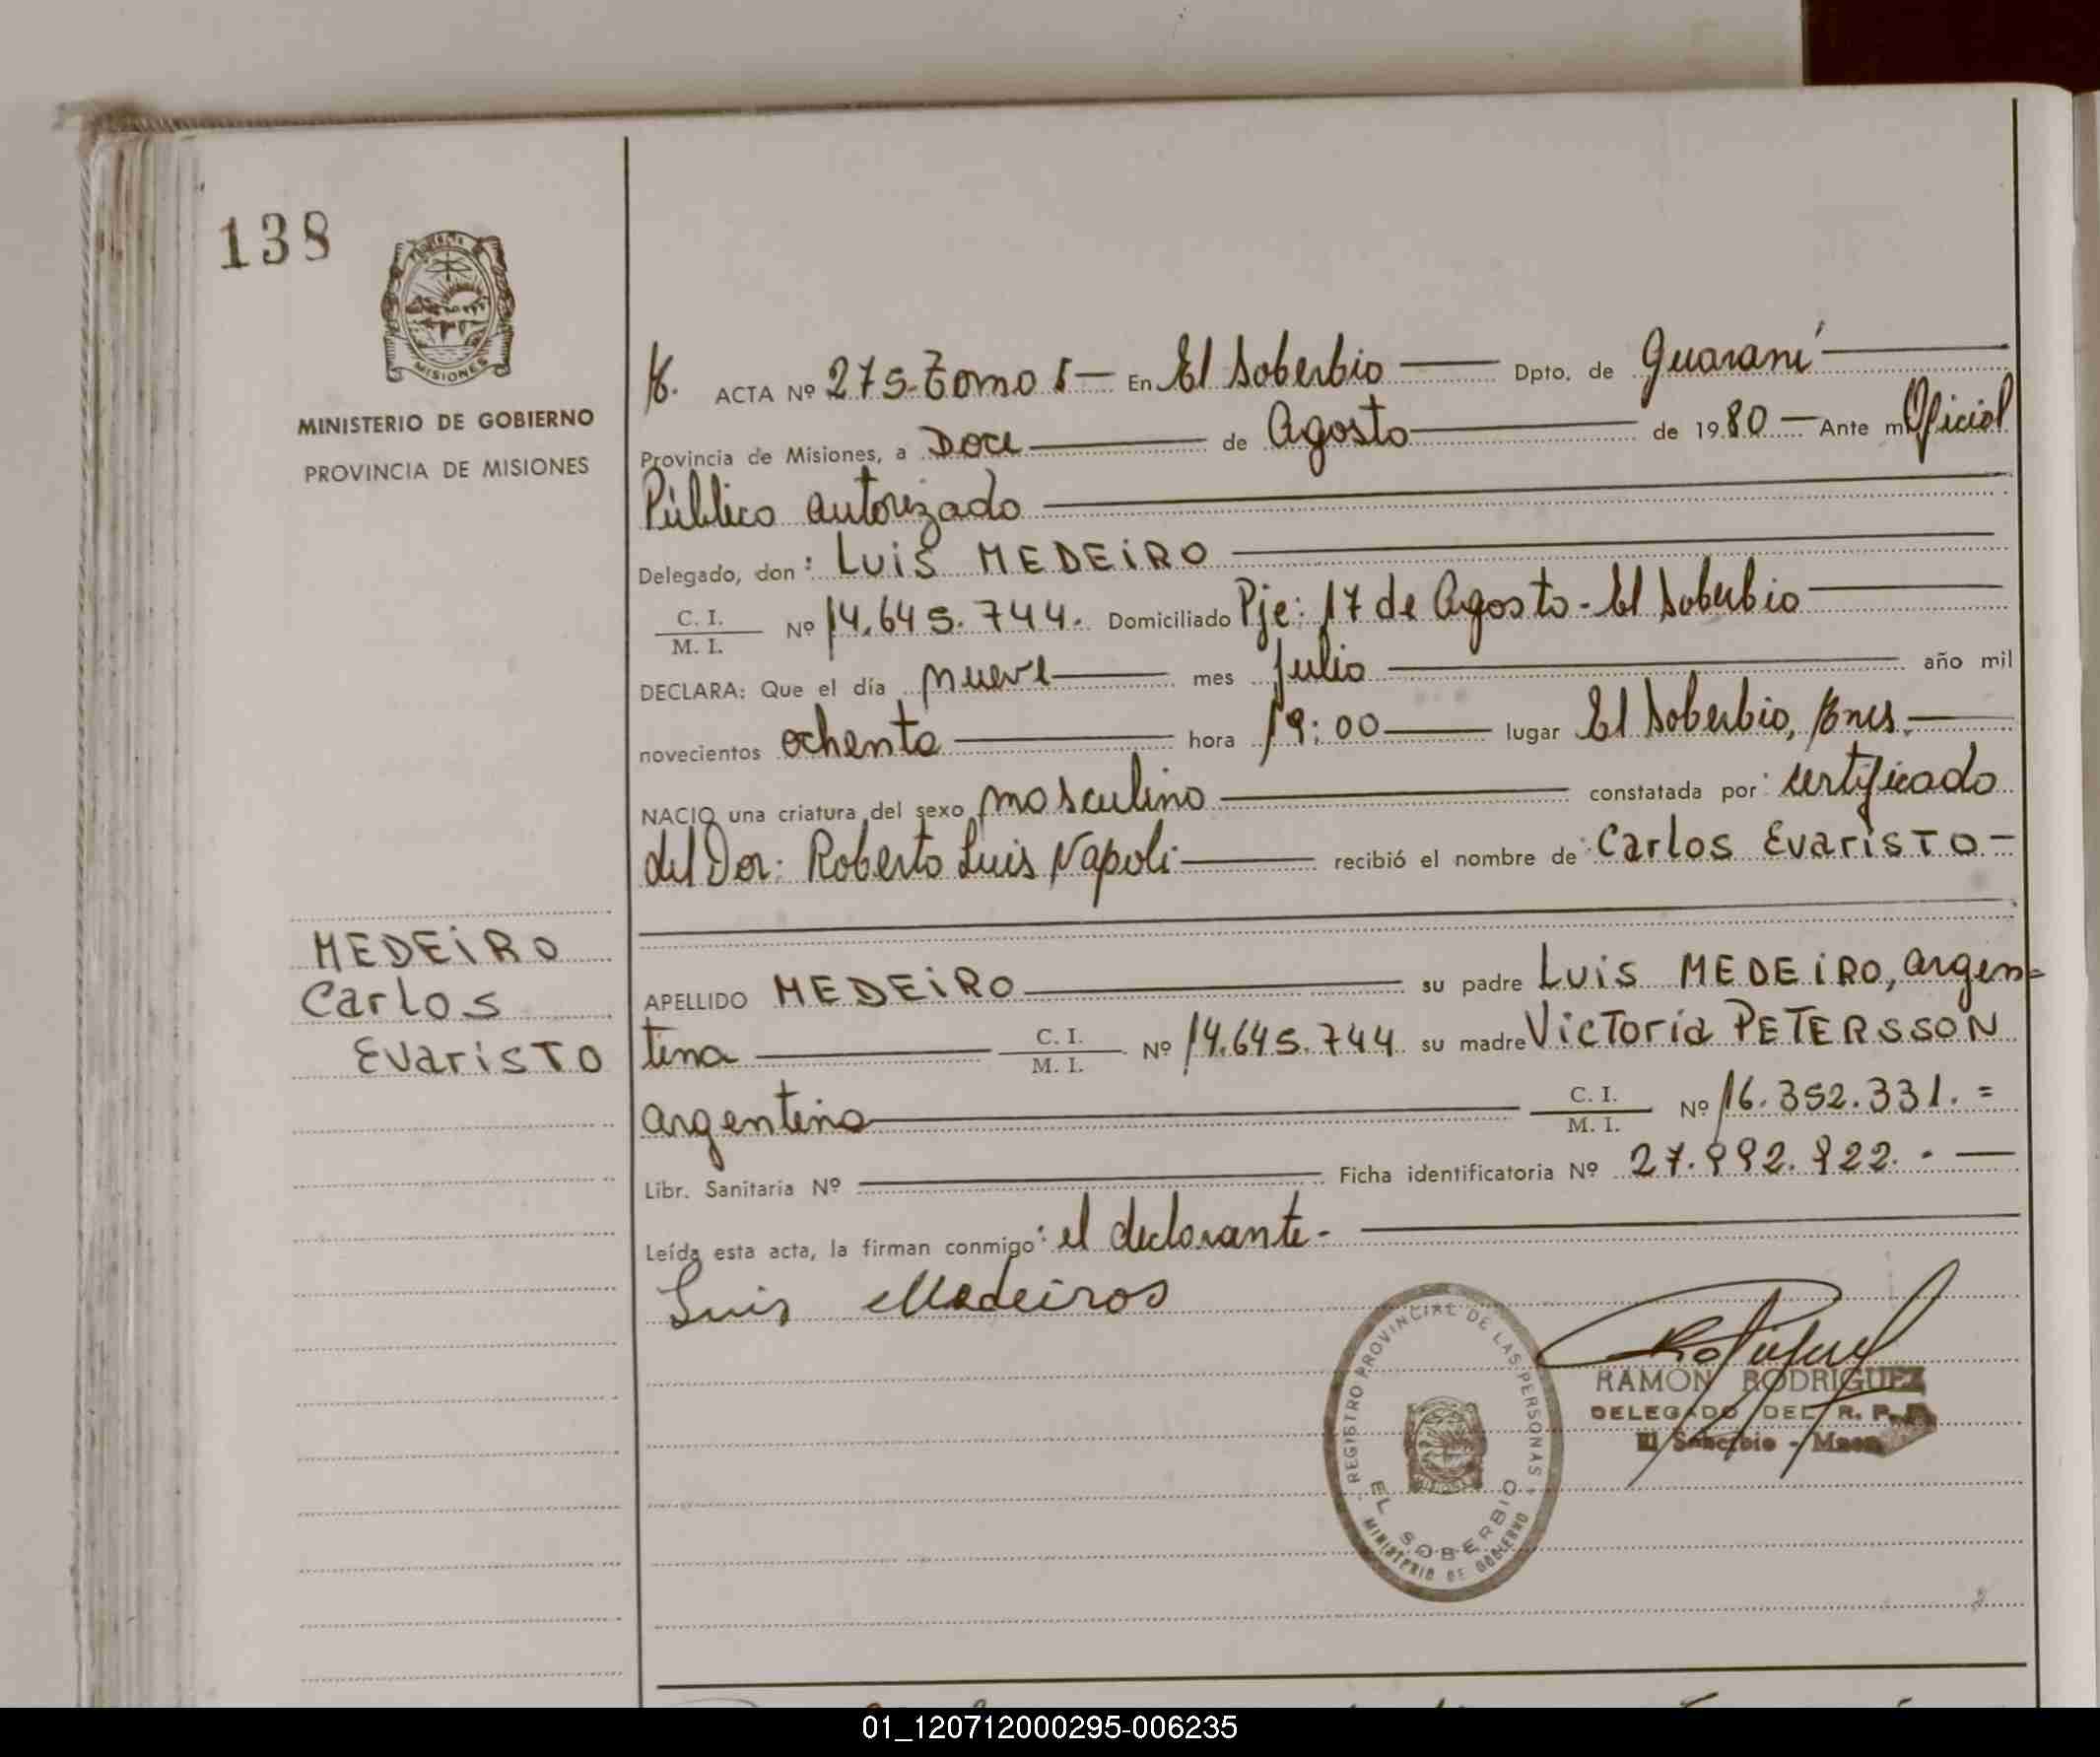 138
MISIONES
MINISTERIO DE GOBIERNO
PROVINCIA DE MISIONES
ACTA Nº 275-Tomo 5- En El Soberbio Dpto. de Guaraní
Provincia de Misiones, a Doce de Agosto de 1980 Ante mí Oficial
Público autorizado
Delegado, don: Luis MEDEIRO
C. I.
M. I. Nº 14.645.744. Domiciliado Pje: 17 de Agosto - El Soberbio
DECLARA: Que el día nueve mes Julio año mil
novecientos ochenta hora 19:00 lugar El Soberbio, Mnes.
NACIO una criatura del sexo masculino constatada por: certificado
del Dor: Roberto Luis Napoli recibió el nombre de: Carlos Evaristo
MEDEIRO
Carlos
Evaristo
APELLIDO MEDEIRO su padre Luis MEDEIRO, argen=
tina C. I. M. I. Nº 14.645.744 su madre Victoria PETERSSON
argentina C. I. M. I. Nº 16.352.331. =
Libr. Sanitaria Nº Ficha identificatoria Nº 27.992.922.
Leída esta acta, la firman conmigo: el declarante.
Luis Medeiros
REGISTRO PROVINCIAL DE LAS PERSONAS
EL SOBERBIO
MINISTERIO DE GOBIERNO
RAMON RODRIGUEZ
DELEGADO DEL R. P. P.
El Soberbio - Mnes
01_120712000295-006235